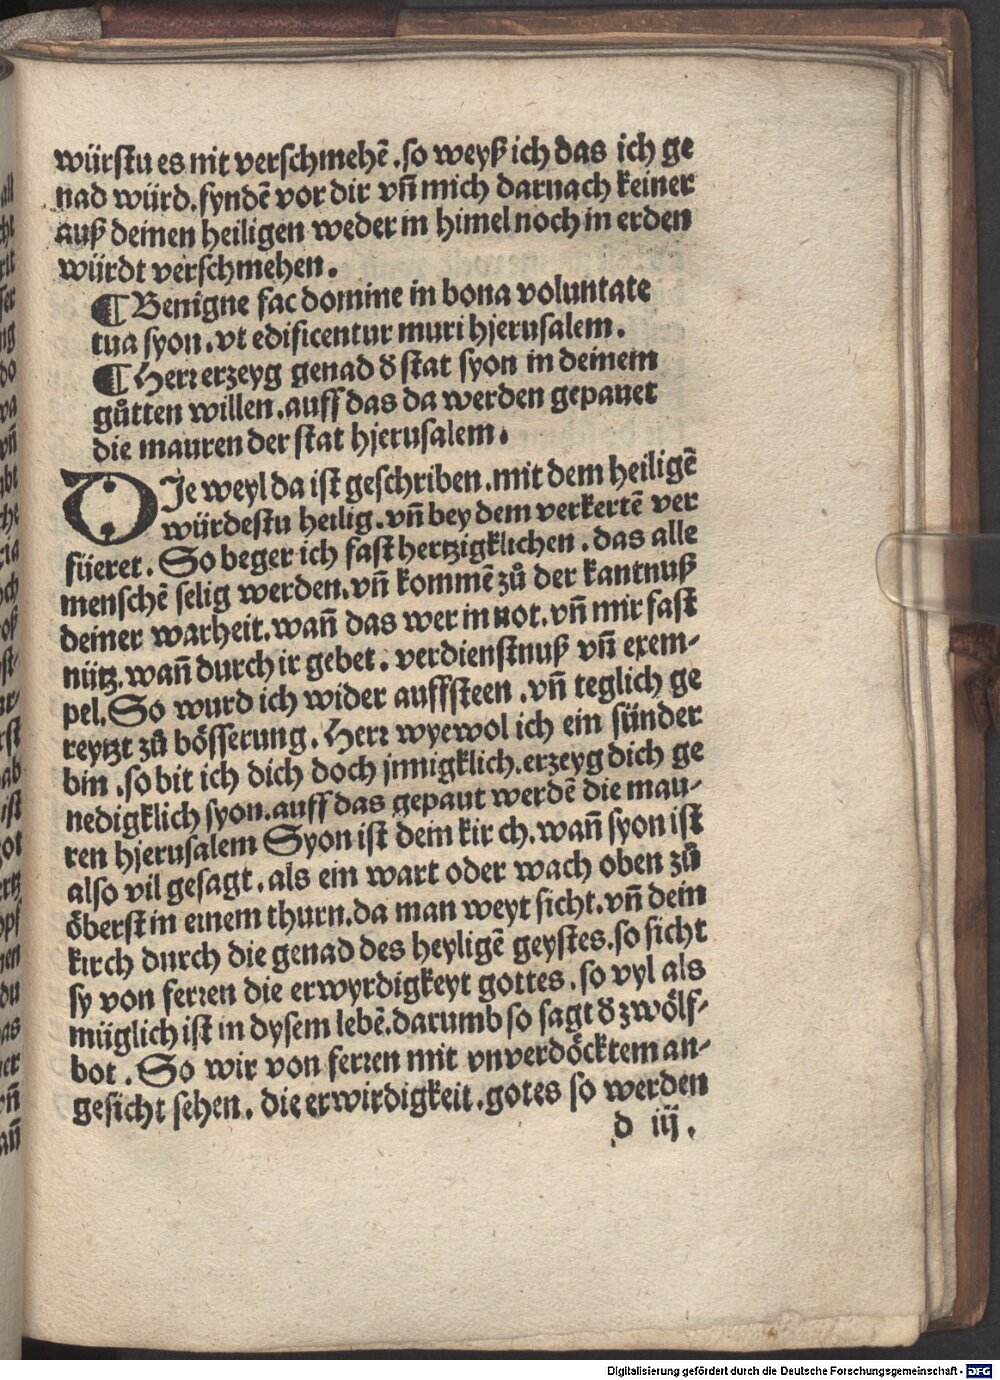 würstu es nit verschmehē .so weyß ich das ich ge
nad würd. fyndē vor dir vn̄ mich darnach keiner
auß deinen heiligen weder in himel noch in erden
würdt verschmehen.
¶ Benigne fac domine in bona voluntate
tua syon. vt edificentur muri hjerusalem.
¶ Herr erzeyg genad d̕ stat syon in deinem
gůtten willen. auff das da werden gepauet
die mauren der stat hjerusalem.
DIe weyl da ist geschriben. mit dem heiligē
würdestu heilig. vn̄ bey dem verkertē ver
füeret. So beger ich fast hertzigklichen. das alle
menschē selig werden. vn̄ kommē zů der kantnuß
deiner warheit. wañ das wer in not. vn̄ mir fast
nütz. wañ durch ir gebet. verdienstnuß vn̄ exem-
pel. So wurd ich wider auffsteen. vn̄ teglich ge
reytzt zů bösserung. Herr wyewol ich ein sünder
bin. so bit ich dich doch jnnigklich. erzeyg dich ge
nedigklich syon. auff das gepaut werdē die mau-
ren hjerusalem Syon ist dein kirch. wañ syon ist
also vil gesagt. als ein wart oder wach oben zů
öberst in einem thurn. da man weyt sicht. vn̄ dein
kirch durch die genad des heyligē geystes. so sicht
sy von ferren die erwyrdigkeyt gottes. so vyl als
müglich ist in dysem lebē. darumb so sagt d̕ zwölf-
bot. So wir von ferren mit vnverdöcktem an-
gesicht sehen. die erwirdigkeit. gotes so werden
d iij.
Digitalisierung gefördert durch die Deutsche Forschungsgemeinschaft - DFG